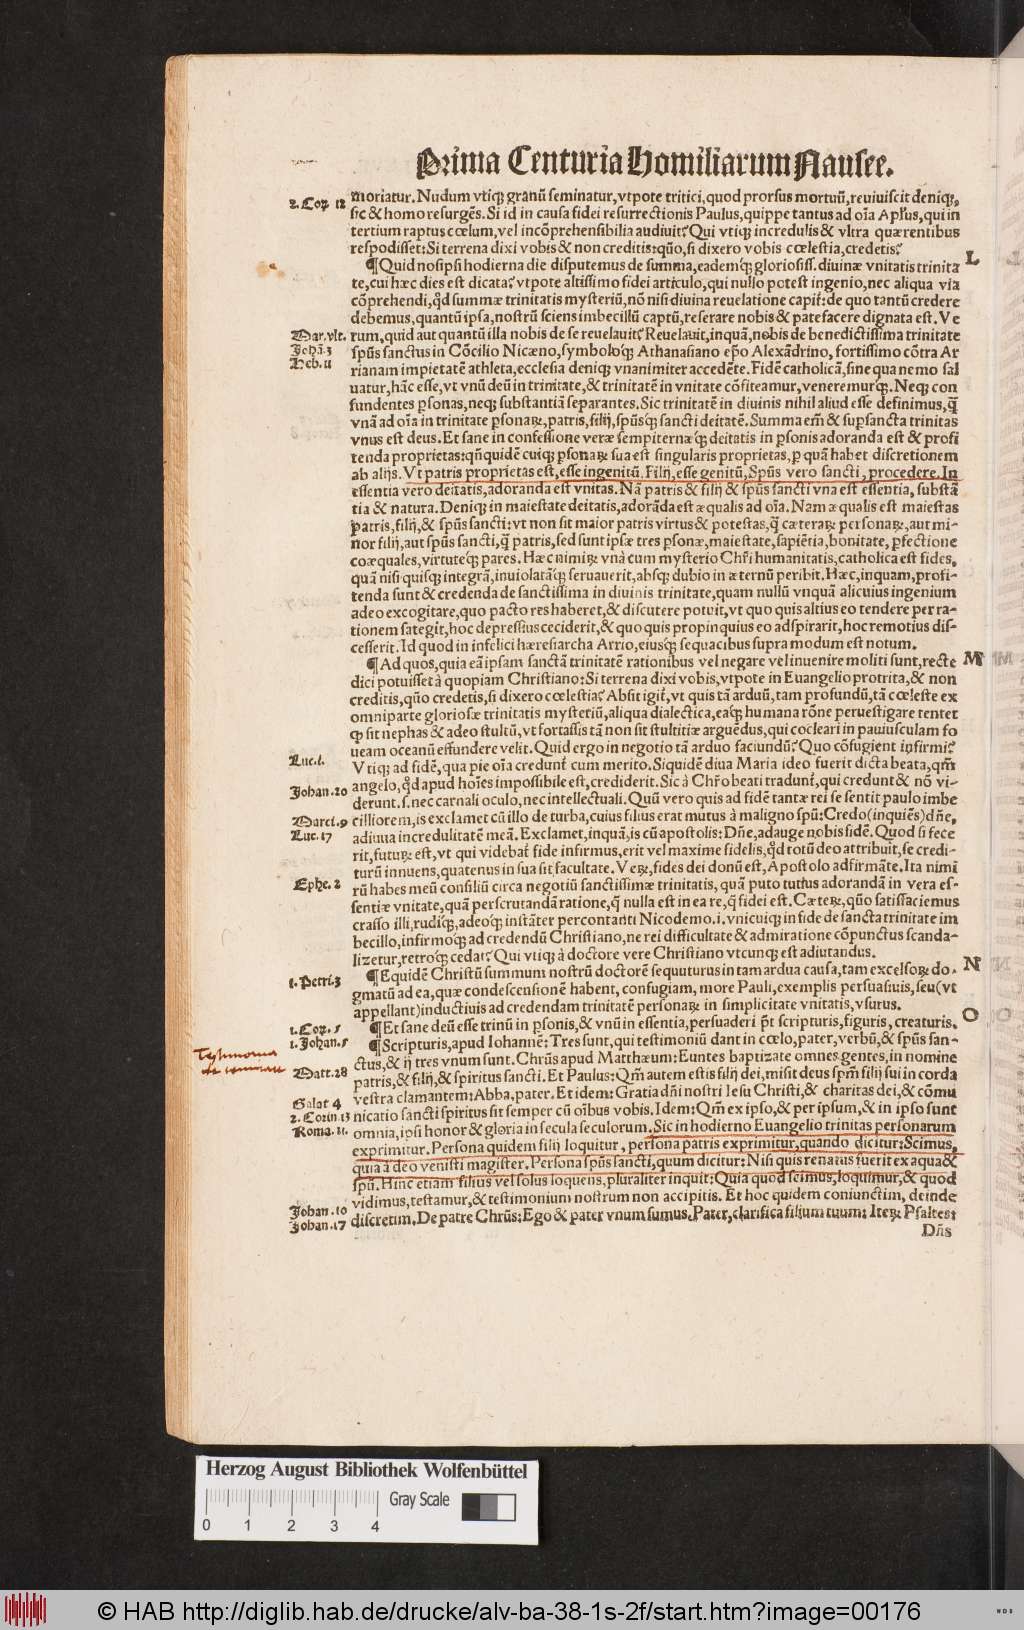 Prima Centuria Homiliarum Nauseę.
2. Coꝝ 12
moriatur. Nudum vtiqꝫ granũ seminatur, vtpote tritici, quod prorsus mortuũ, reuiuiscit deniqꝫ,
sic & homo resurgẽs. Si id in causa fidei resurrectionis Paulus, quippe tantus ad oĩa Apl'us, qui in
tertium raptus cœlum, vel incõprehensibilia audiuit? Qui vtiqꝫ incredulis & vltra quærentibus
respodisset: Si terrena dixi vobis & non creditis: qũo, si dixero vobis cœlestia, credetis?
L
¶ Quid nosipsi hodierna die disputemus de summa, eademqꝫ gloriosiss. diuinæ vnitatis trinita
te, cui hæc dies est dicata? vtpote altissimo fidei articulo, qui nullo potest ingenio, nec aliqua via
cõprehendi, qd̃ summæ trinitatis mysteriũ, nõ nisi diuina reuelatione capit̃: de quo tantũ credere
debemus, quantũ ipsa, nostrũ sciens imbecillũ captũ, reserare nobis & patefacere dignata est. Ve
Mar. vlt.
rum, quid aut quantũ illa nobis de se reuelauit? Reuelauit, inquã, nobis de benedictissima trinitate
Johã. 3
spũs sanctus in Cõcilio Nicæno, symboloqꝫ Athanasiano ep̃o Alexãdrino, fortissimo cõtra Ar
Heb. 11
rianam impietatẽ athleta, ecclesia deniqꝫ vnanimiter accedẽte. Fidẽ catholicã, sine qua nemo sal
uatur, hãc esse, vt vnũ deũ in trinitate, & trinitatẽ in vnitate cõfiteamur, veneremurqꝫ. Neqꝫ con
fundentes p̱sonas, neqꝫ substantiã separantes. Sic trinitatẽ in diuinis nihil aliud esse definimus, q̃
vnã ad oĩa in trinitate p̱sonaꝝ, patris, filij, spũsqꝫ sancti deitatẽ. Summa em̃ & sup̱sancta trinitas
vnus est deus. Et sane in confessione veræ sempiternæqꝫ deitatis in p̱sonis adoranda est & profi
tenda proprietas: qñquidẽ cuiqꝫ p̱sonaꝝ sua est singularis proprietas, p̱ quã habet discretionem
ab alijs. Vt patris proprietas est, esse ingenitũ. Filij, esse genitũ, Spũs vero sancti, procedere. In
essentia vero deitatis, adoranda est vnitas. Nã patris & filij & spũs sancti vna est essentia, substã
tia & natura. Deniqꝫ in maiestate deitatis, adorãda est æqualis ad oĩa. Nam æqualis est maiestas
patris, filij, & spũs sancti: vt non sit maior patris virtus & potestas, q̃ cæteraꝝ personaꝝ, aut mi-
nor filij, aut spũs sancti, q̃ patris, sed sunt ipsæ tres p̱sonæ, maiestate, sapiẽtia, bonitate, p̱fectione
coæquales, virtuteqꝫ pares. Hæc nimiꝝ vnà cum mysterio Chr̃i humanitatis, catholica est fides,
quã nisi quisqꝫ integrã, inuiolatãqꝫ seruauerit, absqꝫ dubio in æternũ peribit. Hæc, inquam, profi-
tenda sunt & credenda de sanctissima in diuinis trinitate, quam nullũ vnquã alicuius ingenium
adeo excogitare, quo pacto res haberet, & discutere potuit, vt quo quis altius eo tendere per ra-
tionem sategit, hoc depressius ceciderit, & quo quis propinquius eo adspirarit, hoc remotius dis-
cesserit. Id quod in infelici hæresiarcha Arrio, eiusqꝫ sequacibus supra modum est notum.
M
¶ Ad quos, quia eã ipsam sanctã trinitatẽ rationibus vel negare vel inuenire moliti sunt, recte
dici potuisset à quopiam Christiano: Si terrena dixi vobis, vtpote in Euangelio protrita, & non
creditis, qũo credetis, si dixero cœlestia? Absit igit̃, vt quis tã arduũ, tam profundũ, tã cœleste ex
omniparte gloriosæ trinitatis mysteriũ, aliqua dialectica, eaqꝫ humana rõne peruestigare tentet
qꝫ sit nephas & adeo stultũ, vt fortassis tã non sit stultitiæ arguẽdus, qui cocleari in pauiusculam fo
ueam oceanũ effundere velit. Quid ergo in negotio tã arduo faciundũ? Quo cõfugient infirmi?
Luc. 1.
Vtiqꝫ ad fidẽ, qua pie oĩa credunt̃ cum merito. Siquidẽ diua Maria ideo fuerit dicta beata, qm̃
angelo, qd̃ apud hoĩes impossibile est, crediderit. Sic à Chr̃o beati tradunt̃, qui credunt & nõ vi-
Johan. 20
derunt. s. nec carnali oculo, nec intellectuali. Quũ vero quis ad fidẽ tantæ rei se sentit paulo imbe
Marci. 9
cilliorem, is exclamet cũ illo de turba, cuius filius erat mutus à maligno spũ: Credo (inquiẽs) dñe,
Luc. 17
adiuua incredulitatẽ meã. Exclamet, inquã, is cũ apostolis: Dñe, adauge nobis fidẽ. Quod si fece
rit, futuꝝ est, vt qui videbat̃ fide infirmus, erit vel maxime fidelis, qd̃ totũ deo attribuit, se credi-
turũ innuens, quatenus in sua sit facultate. Veꝝ, fides dei donũ est, Apostolo adfirmãte. Ita nimi
Ephe. 2
rũ habes meũ consiliũ circa negotiũ sanctissimæ trinitatis, quã puto tutius adorandã in vera es-
sentiæ vnitate, quã perscrutandã ratione, q̃ nulla est in ea re, q̃ fidei est. Cæteꝝ, qũo satisfaciemus
crasso illi, rudiqꝫ, adeoqꝫ instãter percontanti Nicodemo. i. vnicuiqꝫ in fide de sancta trinitate im
becillo, infirmoqꝫ ad credendũ Christiano, ne rei difficultate & admiratione cõpunctus scanda-
lizetur, retroqꝫ cedat? Qui vtiqꝫ à doctore vere Christiano vtcunqꝫ est adiutandus.
N
¶ Equidẽ Christũ summum nostrũ doctorẽ sequuturus in tam ardua causa, tam excelsoꝝ do-
1. Petri. 3
gmatũ ad ea, quæ condescensionẽ habent, confugiam, more Pauli, exemplis persuasiuis, seu (vt
appellant) inductiuis ad credendam trinitatẽ personaꝝ in simplicitate vnitatis, vsurus.
O
1. Coꝝ. 5
¶ Et sane deũ esse trinũ in p̱sonis, & vnũ in essentia, persuaderi p̃t scripturis, figuris, creaturis.
1. Johan. 5
¶ Scripturis, apud Iohannẽ: Tres sunt, qui testimoniũ dant in cœlo, pater, verbũ, & spũs san-
ctus, & ij tres vnum sunt. Chr̃us apud Matthæum: Euntes baptizate omnes gentes, in nomine
Matt. 28
patris, & filij, & spiritus sancti. Et Paulus: Qm̃ autem estis filij dei, misit deus spm̃ filij sui in corda
vestra clamantem: Abba, pater. Et idem: Gratia dñi nostri Iesu Christi, & charitas dei, & cõmu
Galat 4
2. Corin. 13
nicatio sancti spiritus sit semper cũ oĩbus vobis. Idem: Qm̃ ex ipso, & per ipsum, & in ipso sunt
Roma. 11.
omnia, ipsi honor & gloria in secula seculorum. Sic in hodierno Euangelio trinitas personarum
exprimitur. Persona quidem filij loquitur, persona patris exprimitur, quando dicitur: Scimus,
quia à deo venisti magister. Persona spũs sancti, quum dicitur: Nisi quis renatus fuerit ex aqua &
spũ. Hinc etiam filius vel solus loquens, pluraliter inquit: Quia quod scimus, loquimur, & quod
vidimus, testamur, & testimonium nostrum non accipitis. Et hoc quidem coniunctim, deinde
Johan. 10
Johan. 17
discretim. De patre Chr̃us: Ego & pater vnum sumus. Pater, clarifica filium tuum: Iteꝝ Psaltes:
Dñs
Herzog August Bibliothek Wolfenbüttel
Gray Scale
0 1 2 3 4
© HAB http://diglib.hab.de/drucke/alv-ba-38-1s-2f/start.htm?image=00176